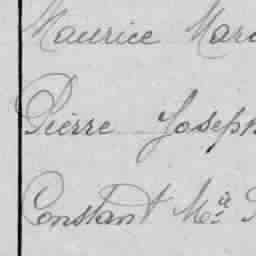 Maurice Marc
Pierre Joseph
Constant Mª